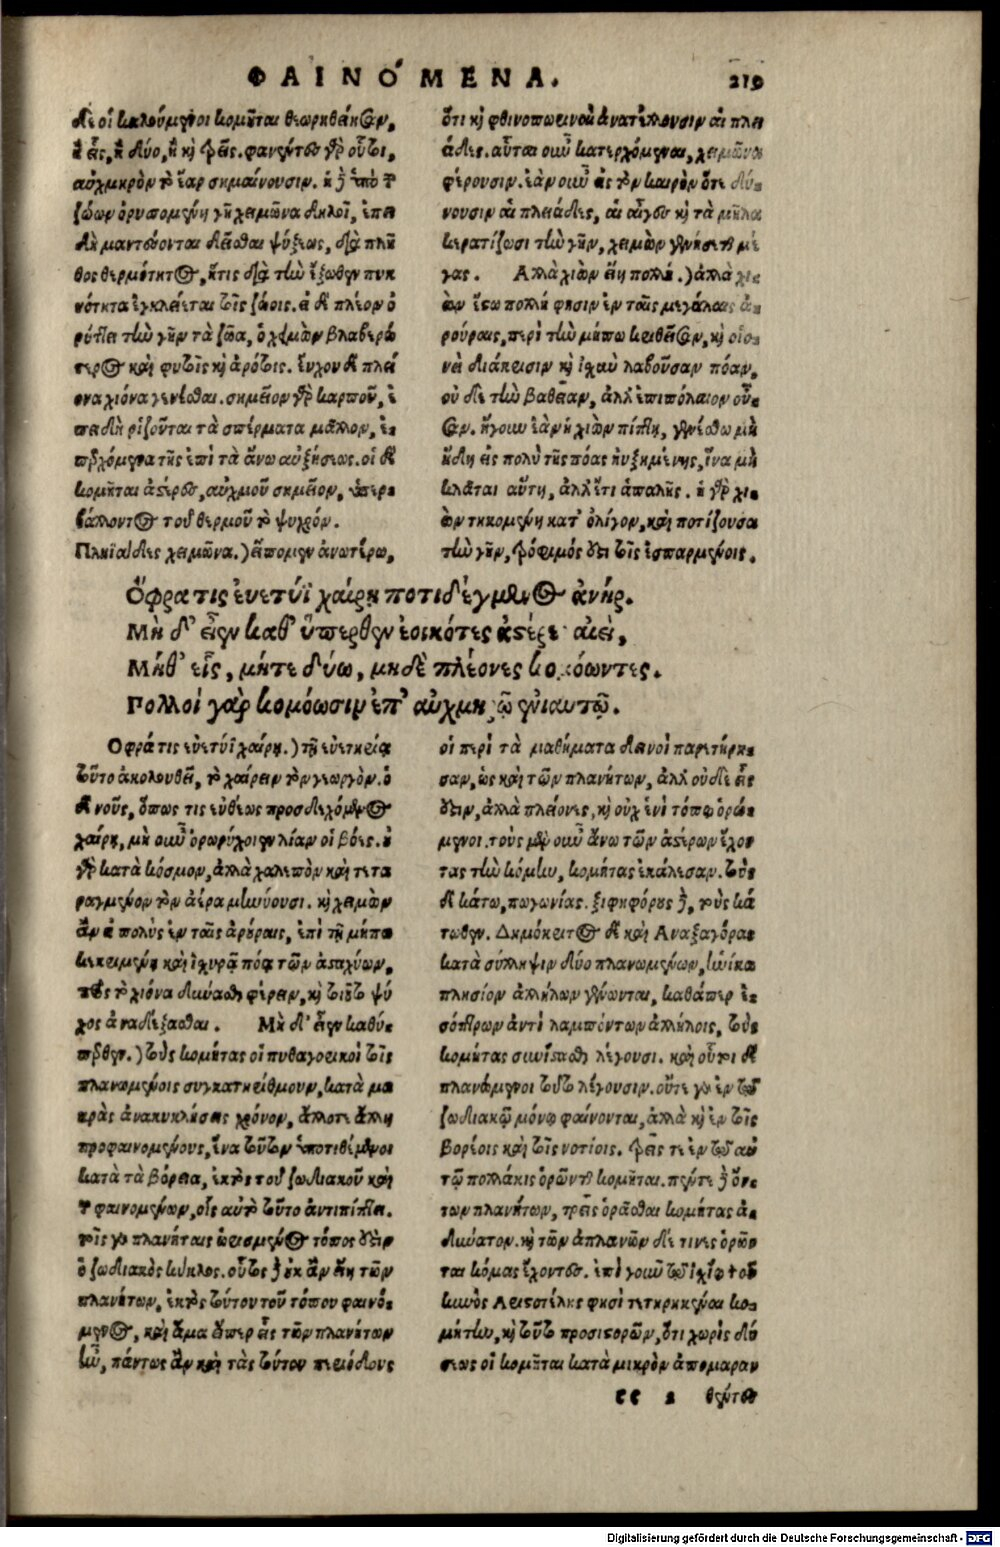 ΦΑΙΝΟ´ΜΕΝΑ. 219
δὲ οἱ καλούμενοι κομῆται θεωρηθεῖεν,
ἢ εἷς, ἢ δύο, ἢ καὶ τρεῖς. φανέντες γὰρ οὗτοι,
αὐχμηρὸν τὸ ἔαρ σημαίνουσιν. ἡ δὲ ὑπὸ τ
ζώων ὀρυττομένη γῆ χειμῶνα δηλοῖ, ἐπει
δὴ μαντεύονται δεῖσθαι ψύξεως, διὰ πλῆ
θος θερμότητος, ἥτις διὰ τὴν ἔξωθεν πυκ
νότητα ἐγκλείεται τοῖς ζώοις. εἰ δὲ πλέον ὀ
ρύττει τὴν γῆν τὰ ζῶα, ὁ χειμὼν βλαβερώ
τερος καὶ φυτοῖς καὶ ἀρότοις. εὔχου δὲ πλεί
ονα χιόνα γενέσθαι. σημεῖον γὰρ καρποῦ, ἐ
πειδὴ ῥιζοῦνται τὰ σπέρματα μᾶλλον, ἐ-
περχόμενα τῆς ἐπὶ τὰ ἄνω αὐξήσεως. οἱ δὲ
κομῆται ἀστέρες, αὐχμοῦ σημεῖον, ὑπερ-
βάλλοντος τοῦ θερμοῦ τὸ ψυχρόν.
Πληϊάδες χειμῶνα.) εἴπομεν ἀνωτέρω,
ὅτι καὶ φθινοπωριναὶ ἀνατέλλουσιν αἱ πλει
άδες. αὗται οὖν κατερχόμεναι, χειμῶνα
φέρουσιν. ἐὰν οὖν εἰς τὸν καιρὸν ὅτε δύ-
νουσιν αἱ πλειάδες, αἱ αἶγες καὶ τὰ μῆλα
κερατίζωσι τὴν γῆν, χειμὼν γενήσεται μέ
γας. Ἀλλὰ χιὼν εἴη πολλή.) ἀλλὰ χι-
ὼν ἔστω πολλή φησιν ἐν ταῖς μεγάλαις ἀ-
ρούραις, περὶ τὴν μήπω κριθεῖσαν, καὶ οἱο-
νεὶ διάκρισιν καὶ ἰσχὺν λαβοῦσαν πόαν,
οὐ δὲ τὴν βαθεῖαν, ἀλλ' ἐπιπόλαιον οὖ-
σαν. ἤγουν ἐὰν ἡ χιὼν πίπτῃ, γενέσθω μὴ
ἤδη εἰς πολὺ τῆς πόας ηὐξημένης, ἵνα μὴ
κλᾶται αὕτη, ἀλλ' ἔτι ἁπαλῆς. ἡ γὰρ χι-
ὼν τηκομένη κατ' ὀλίγον, καὶ ποτίζουσα
τὴν γῆν, τρόφιμός ἐστι τοῖς ἐσπαρμένοις.
Ὄφρα τις εὐεστοῖ χαίρῃ ποτιδέγμενος ἀνήρ.
Μὴ δ' εἶεν καθ' ὕπερθεν ἐοικότες ἀστέρες αἰεὶ,
Μήθ' εἷς, μήτε δύω, μηδὲ πλέονες κομόωντες.
Πολλοὶ γὰρ κομόωσιν ἐπ' αὐχμηρῷ ἐνιαυτῷ.
Ὄφρα τις εὐεστοῖ χαίρῃ.) τῇ εὐετηρίᾳ
τοῦτο ἀκολουθεῖ, τὸ χαίρειν τὸν γεωργόν. ὁ
δὲ νοῦς, ὅπως τις εὐθέως προσδεχόμενος
χαίρῃ, μὴ οὖν ὀρωρύχοιεν λίαν οἱ βόες. οὐ
γὰρ κατὰ κόσμον, ἀλλὰ χαλεπὸν καὶ τετα
ραγμένον τὸν ἀέρα μηνύουσι. καὶ χειμὼν
ἂν εἴη πολὺς ἐν ταῖς ἀρούραις, ἐπὶ τῇ μήπω
κεκριμένῃ καὶ ἰσχυρᾷ πόᾳ τῶν ἀσταχύων,
πρὸς τὸ χιόνα δύνασθαι φέρειν, καὶ τοῦτο ψύ
χος ἀναδέξασθαι. Μὴ δ' εἶεν καθύ-
περθεν.) τοὺς κομήτας οἱ πυθαγορικοὶ τοῖς
πλανωμένοις συγκατηρίθμουν, κατὰ μα
κρὰς ἀνακυκλήσεις χρόνον, ἄλλοτε ἄλλῃ
προφαινομένους, ἵνα τούτων ὑποτιθέμενοι
κατὰ τὰ βόρεια, ἐκτὸς τοῦ ζωδιακοῦ καὶ
τ φαινομένων, οἷς αὐτὸ τοῦτο ἀντιπίπτει.
τοῖς γὰρ πλανήταις ὡρισμένος τόπος ἐστὶν
ὁ ζωδιακὸς κύκλος. οὗτος δὲ οὐκ ἂν εἴη τῶν
πλανήτων, ἐκτὸς τούτου τοῦ τόπου φαινό-
μενος, καὶ ἅμα ὅπερ εἷς τῶν πλανήτων
ἦν, πάντως ἂν καὶ τὰς τούτου περιόδους
οἱ περὶ τὰ μαθήματα δεινοὶ παρετήρη-
σαν, ὡς καὶ τῶν πλανήτων, ἀλλ' οὐδὲ εἷς
ἐστιν, ἀλλὰ πλείονες, καὶ οὐχ ἑνὶ τόπῳ ὁρώ-
μενοι. τοὺς μὲν οὖν ἄνω τῶν ἀστέρων ἔχον
τας τὴν κόμην, κομήτας ἐκάλεσαν. τοὺς
δὲ κάτω, πωγωνίας. ξιφηφόρους δὲ, τοὺς κά
τωθεν. Δημόκριτος δὲ καὶ Ἀναξαγόρας
κατὰ σύλληψιν δύο πλανωμένων, ἡνίκα
πλησίον ἀλλήλων γένωνται, καθάπερ ἐ-
σόπτρων ἀντιλαμπόντων ἀλλήλοις, τοὺς
κομήτας συνίστασθαι λέγουσι. καὶ οὗτοι δὲ
πλανώμενοι τοῦτο λέγουσιν. οὔτε γὰρ ἐν τῷ
ζωδιακῷ μόνῳ φαίνονται, ἀλλὰ καὶ ἐν τοῖς
βορείοις καὶ τοῖς νοτίοις. τρεῖς τε ἐν τῷ αὐ
τῷ πολλάκις ὁρῶνται κομῆται. πέντε δὲ ὄν-
των πλανήτων, τρεῖς ὁρᾶσθαι κομήτας ἀ-
δύνατον. καὶ τῶν ἀπλανῶν δέ τινες ὁρῶν
ται κόμας ἔχοντες. ἐπὶ γοῦν τῷ ἰσχίῳ τοῦ
κυνὸς Ἀριστοτέλης φησὶ τετηρηκέναι κο-
μήτην, καὶ τοῦτο προσιστορῶν, ὅτι χωρὶς δύ
σεως οἱ κομῆται κατὰ μικρὸν ἀπομαραν
cc 2 θέντες
Digitalisierung gefördert durch die Deutsche Forschungsgemeinschaft - DFG